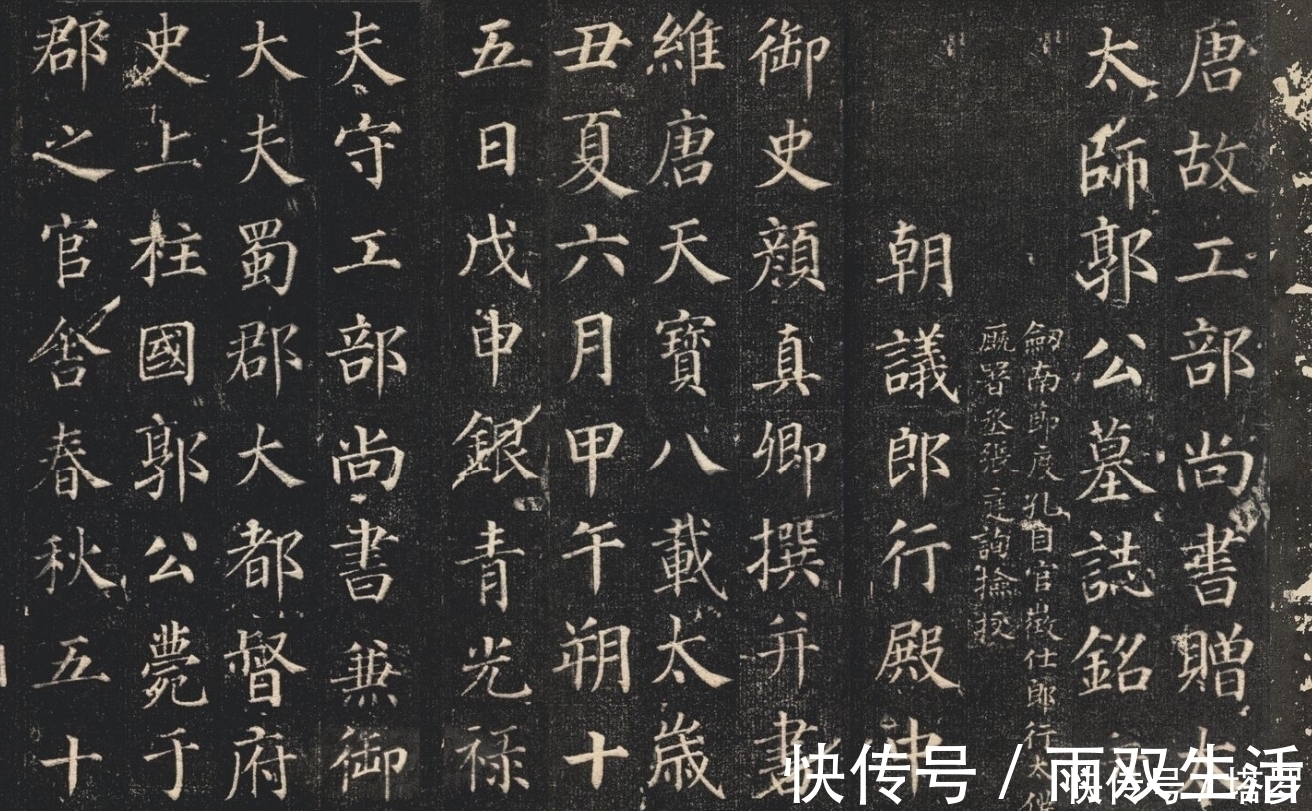 唐故工部尚書贈太
太師郭公墓誌銘
劒南節度孔目官徵仕郎行太僕
厩署丞張庭詢撿挍
朝議郎行殿中
御史顔真卿撰并書
維唐天寶八載太歲
丑夏六月甲午朔十
五日戊申銀青光禄
夫守工部尚書兼御
大夫蜀郡大都督府
史上柱國郭公薨于
郡之官舍春秋五十
快传号 / 雨双生活